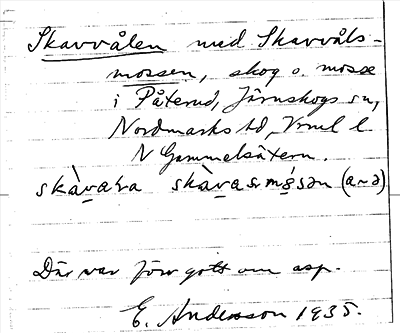 Skavvålen med Skavvåls-
mossen, skog o. mosse
i Påterud, Järnskogs sn,
Nordmarks hd, Vrml l.
N Gammelsätern.
skàvaɫa skàvasmósən (a~ə)
Där var förr gott om asp.
E. Andersson 1935.